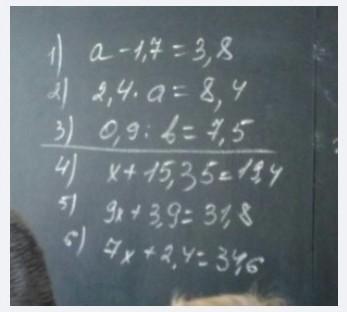 1) a - 1,7 = 3,8
2) 2,4 · a = 8,4
3) 0,9 : b = 7,5
4) x + 15,35 = 19,4
5) 9x + 3,9 = 31,8
6) 7x + 2,4 = 34,6